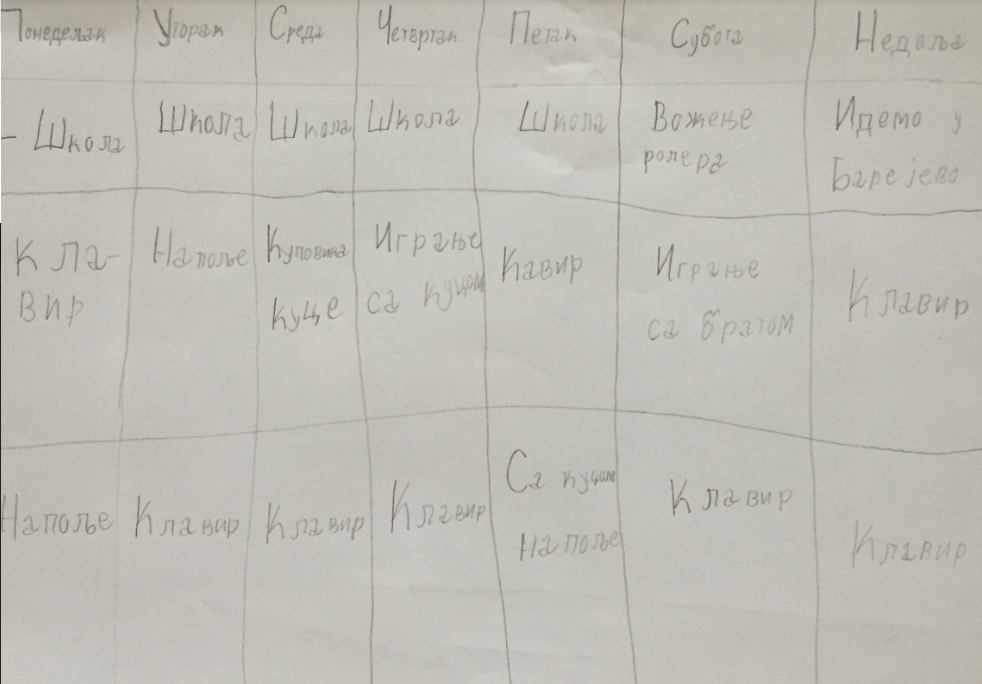 Понедељак Уторак Среда Четвртак Петак Субота Недеља
- Школа Школа Школа Школа Школа Вожење Идемо у
ролера Барејево
Кла- Напоље Куповина Играње Кавир Играње Клавир
вир куце са куцом са братом
Напоље Клавир Клавир Клавир Са куцом Клавир Клавир
напоље